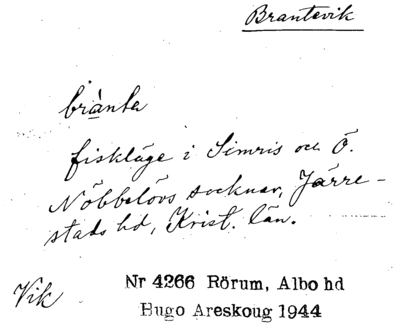 Brantevik
brànta
fiskläge i Simris och Ö.
Nöbbelövs socknar, Järre-
stads hd, Krist. län.
Vik
Nr 4266 Rörum, Albo hd
Hugo Areskoug 1944